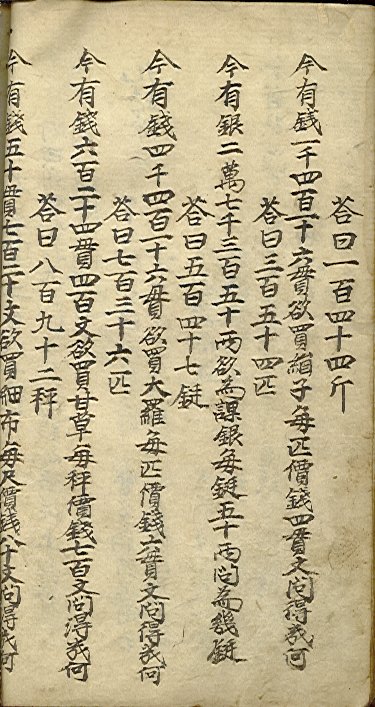 荅曰一百四十四斤
今有錢一千四百一十六貫欲買絹子每匹價錢四貫文問得幾何
荅曰三百五十四匹
今有銀二萬七千三百五十兩欲為課銀每鋌五十兩問為幾鋌
荅曰五百四十七鋌
今有錢四千四百一十六貫欲買大羅每匹價錢六貫文問得幾何
荅曰七百三十六匹
今有錢六百二十四貫四百文欲買甘草每秤價錢七百文問得幾何
荅曰八百九十二秤
今有錢五十貫七百二十文欲買細布每尺價錢八十文問得幾何